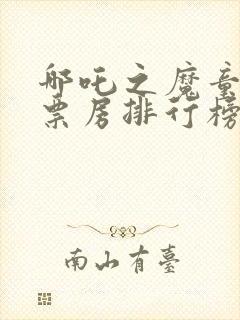 哪吒之魔童
票房排行榜
南山有臺